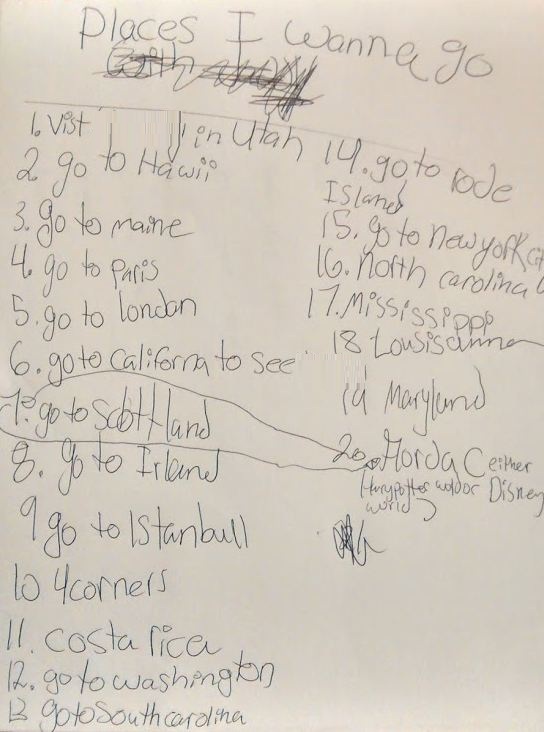 Places I wanna go
1. Vist in Utah
2. go to Hawii
3. go to maine
4. go to Paris
5. go to london
6. go to californa to see
7. go to Scottland
8. go to Irland
9 go to IStanbull
10 4corners
11. costa rica
12. go to washington
13 go to South carolina
14. go to rode
Island
15. go to new york cit
16. North carolina
17. Mississippp
18 Lousisanna
19 Maryland
20. Florda C either
Harry potter world or Disney
world